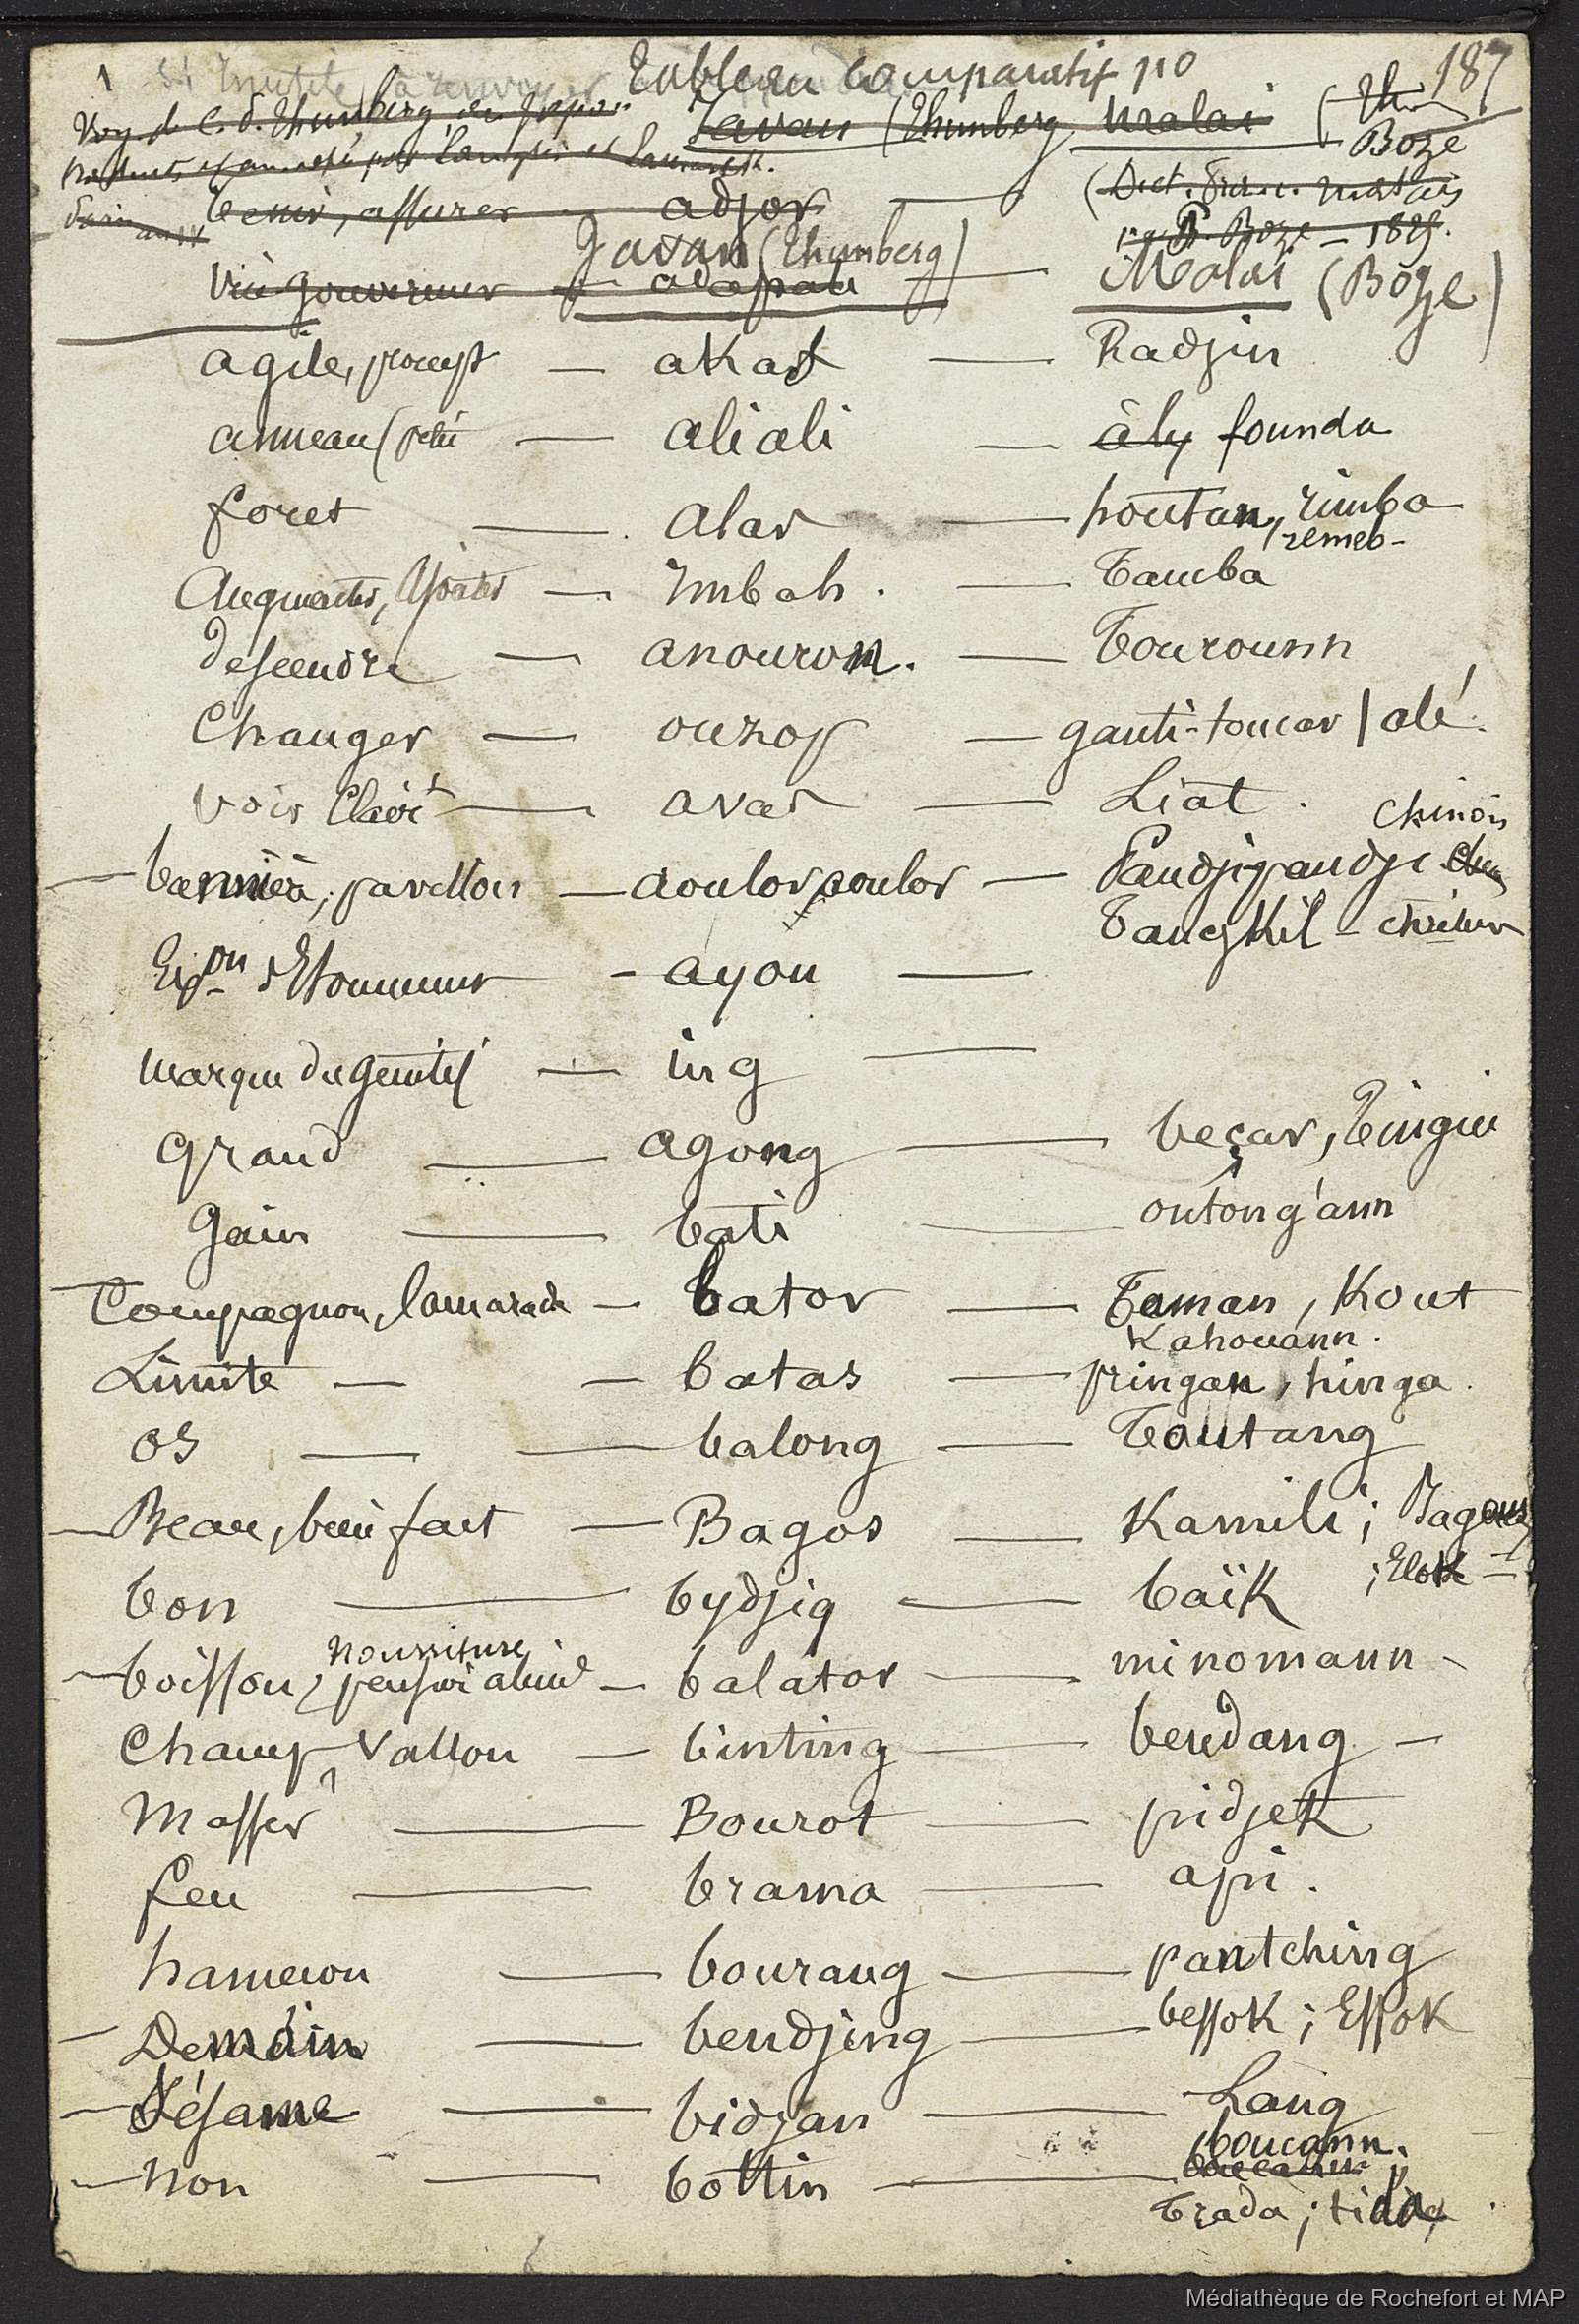 1 Tableau comparatif 110 187
Voy. de C. d. Thunberg, au Japon Javan (Thunberg Malai (Thun
Boze
traduits, et annoté par Langlès et Lamarck. (Dict. franc. malais
tenir, assurer — adjor —
p. P. Boze – 1825.
Javan (Thunberg) Malai (Boze)
Vice gouverneur — adapati —
agile, prompt — akas — Radjin
anneau (petit — aliali — àly founda
foret — alas — houtan, rimba
remeb-
Augmenter, ajouter — Imbah. — Tamba
descendre — anouron. — Tourounn
Changer — ouzop — ganti-toucar / alé.
Voir clair — avas — Liat. Chinois
— bannière, pavillon — aoulor, aoulor — Pandjipandji
Tangkil –
Expon d'Etonnement - ayou —
marque du genitif — ing —
grand — agong — beçar, tingui
gain — bati — outong'ann
Compagnon, Camarade — bator — Teman, Kout
Kahouann.
Limite — — batas — pringan, hinga.
os — — balong — Toutang
— Beau, bien fait — Bagos — Kamili; Bagous
bon — bydjig — baïk ; Elok —
nourriture
— boisson, — balator — minomann -
Champ, Vallon — binting — bendang –
Masser — Bourot — pidjet
feu — brama — api.
hameçon — bourang — pantching
— Demain — bendjing — bessok; Essok
— Sésame — bidjan — Lang
boucann.
— non — bottin —
Trada; tida
Médiathèque de Rochefort et MAP